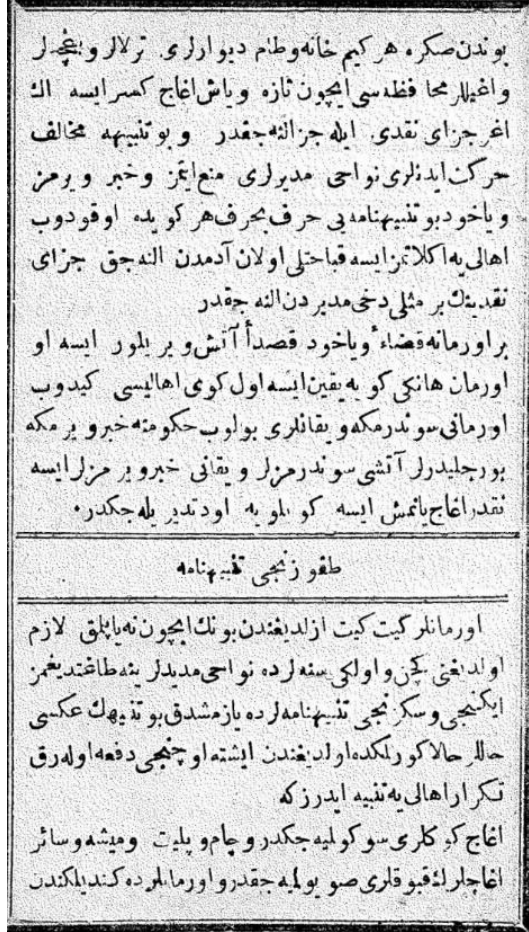 بوندن صكره هر كيم خانه و طام ديوارلری ترلالر و بغچه‌لر
و اغيللر محافظه‌سی ايچون تازه و ياش اغاج كسر ايسه اڭ
اغر جزای نقدی ايله جزالنه‌جقدر و بو تنبيهه مخالف
حركت ايدنلری نواحی مديرلری منع ايتمز و خبر ويرمز
و ياخود بو تنبيهنامه‌يی حرف بحرف هر كويده اوقودوب
اهالی‌يه اكلاتمز ايسه قباحتلی اولان آدمدن النه‌جق جزای
نقدينڭ بر مثلی دخی مديردن النه‌جقدر
بر اورمانه قضاءً و ياخود قصداً آتش ويريلور ايسه او
اورمان هانكی كويه يقين ايسه اول كوی اهاليسی كيدوب
اورمانی سوندرمكه و يقانلری بولوب حكومته خبر ويرمكه
بورجليدرلر آتشی سوندرمزلر و يقانی خبر ويرمزلر ايسه
نقدر اغاج يانمش ايسه كويلويه اودتديريله‌جكدر.
طقوزنجی تنبيهنامه
اورمانلر گيت گيت ازلديغندن بونڭ ايچون نه ياپلمق لازم
اولديغنی كچن و اولكی سنه‌لرده نواحی مديدلرينه طاغتديغمز
ايكنجی و سكزنجی تنبيهنامه‌لرده يازمشدق بو تنبيهڭ عكسی
حاللر حالا كورلمكده اولديغندن ايشته اوچنجی دفعه اوله‌رق
تكرار اهالی‌يه تنبيه ايدرزكه
اغاج كوكلری سوكولميه‌جكدر و چام و پليت و ميشه و سائر
اغاجلرڭ قبوقلری صويولميه‌جقدر و اورمانلرده كنديلكندن